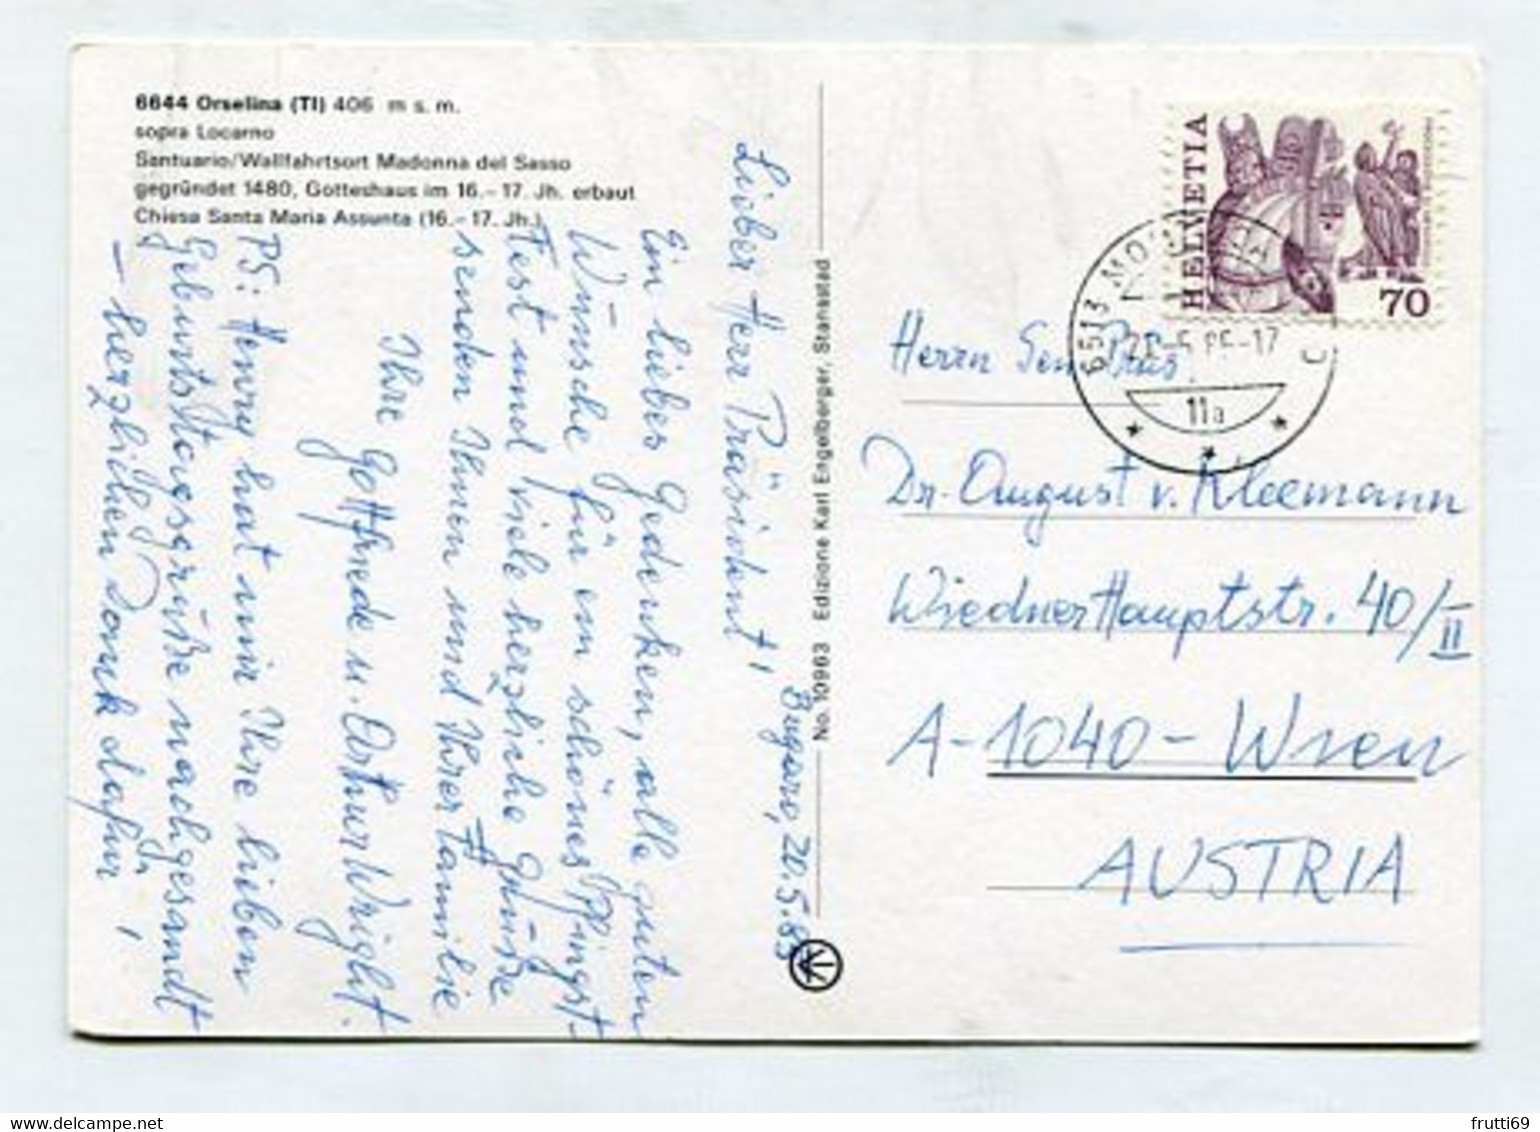 6644 Orselina (TI) 406 m s. m.
sopra Locarno
Santuario/Wallfahrtsort Madonna del Sasso
gegründet 1480, Gotteshaus im 16.–17. Jh. erbaut
Chiesa Santa Maria Assunta (16.–17. Jh.)
Brugaro, 20.5.85
Lieber Herr Präsident!
Ein liebes Gedenken, alle guten
Wünsche für ein schönes Pfingst-
fest und viele herzliche Grüße
senden Ihnen und Ihrer Familie
Ihre Gottfriede u. Arthur Wright.
PS: Henry hat mir Ihre lieben
Geburtstagsgrüße nachgesandt
– herzlichen Dank dafür!
No. 10963 Edizione Karl Engelberger, Stansstad
HELVETIA
70
6513 MO
5.85-17
11a
Herrn Sen. Präs.
Dr. August v. Kleemann
Wiedner Hauptstr. 40/II
A-1040-Wien
AUSTRIA
www.delcampe.net
frutti69